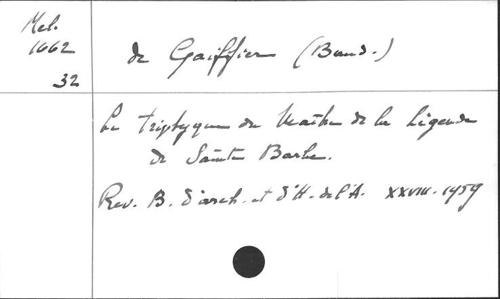 Mel.
1662
32
de Gaiffier (Baud.)
Le triptyque du Maître de la Légende
de Sainte Barbe.
Rev. B. d'arch. et d'H. de l'A. XXVIII. 1959